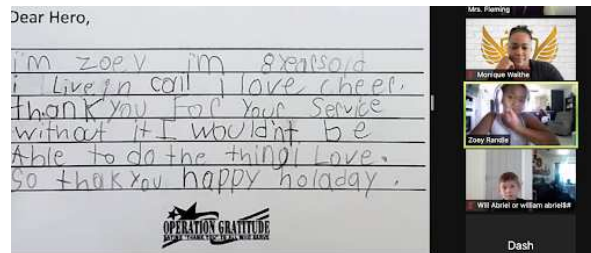 Dear Hero,
i'm zoey im 8 years old
i Live in cali i love cheer.
thank You For Your Service
without it I wouldn't be
Able to do the thing I Love.
So thak You happy holaday.
OPERATION GRATITUDE
SAYING "THANK YOU" TO ALL WHO SERVE
Mrs. Fleming
Monique Walthe
Zoey Randle
Will Abriel or william abriel$#
Dash